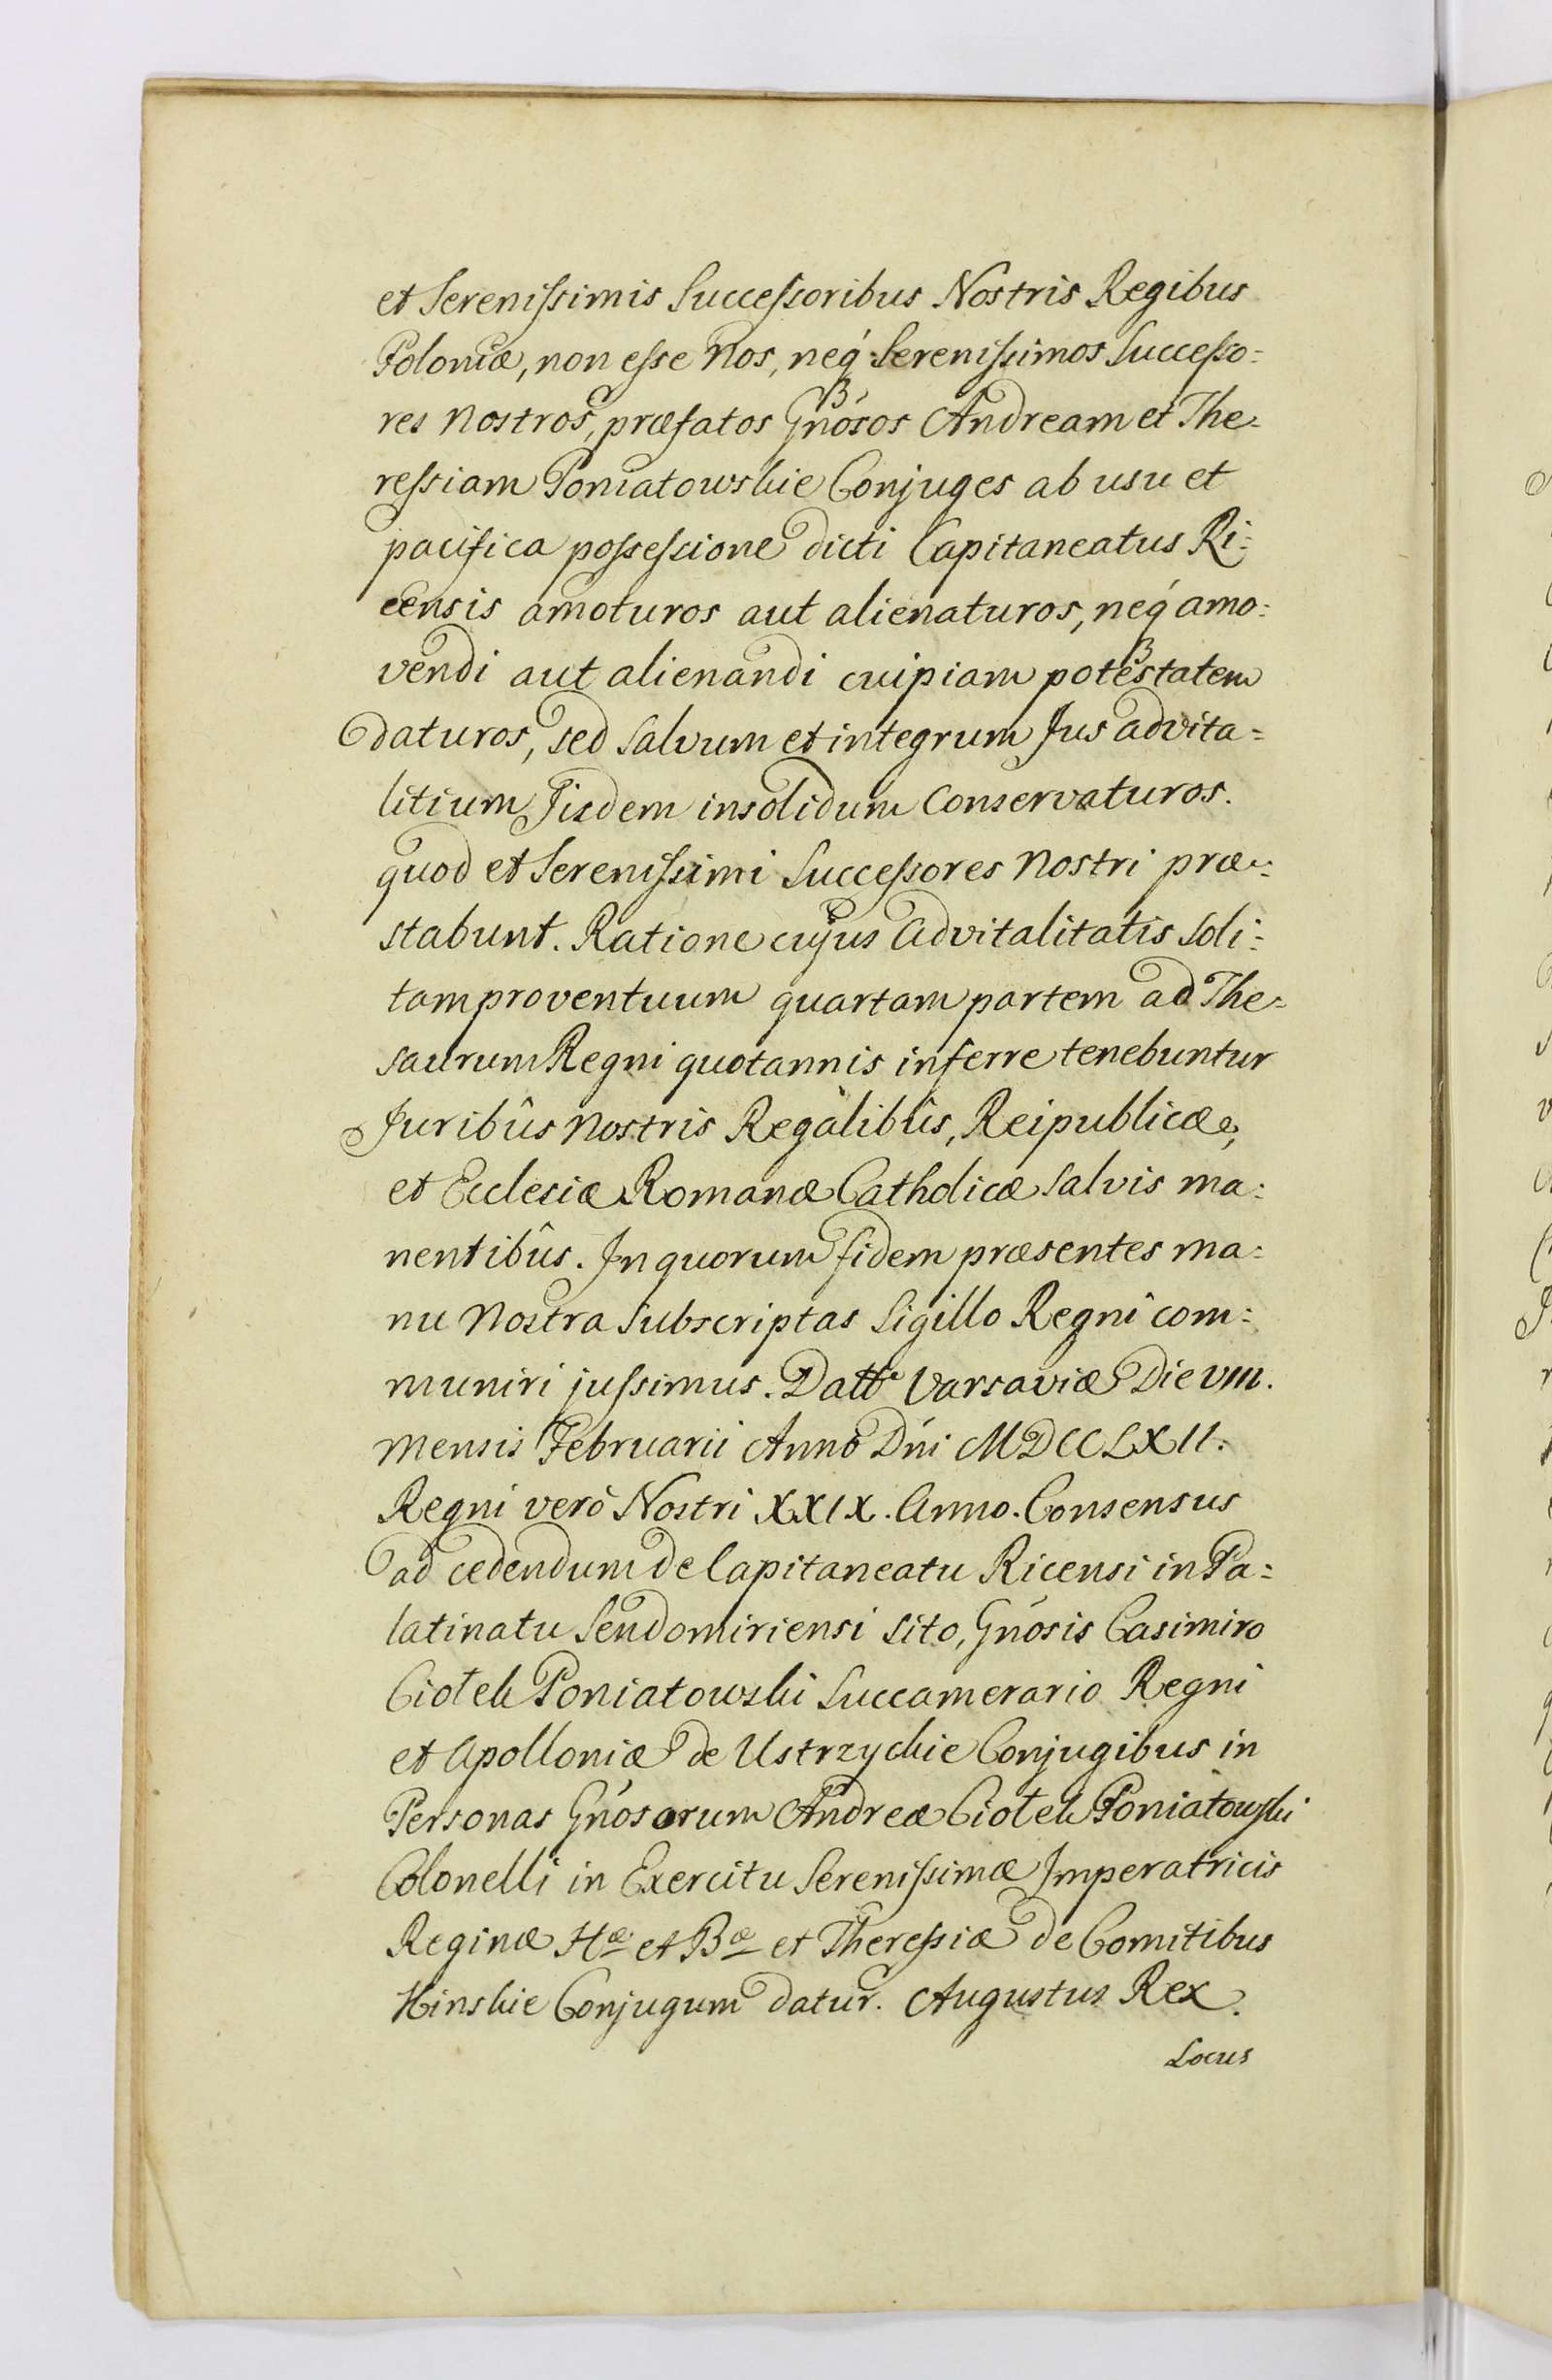 et Serenissimis Successoribus Nostris Regibus
Poloniæ, non esse Nos, neq́ꝫ Serenissimos Successo=
res Nostros, præfatos Gńosos Andream et The=
ressiam Poniatowskie Conjuges ab usu et
pacifica possessione dicti Capitaneatus Ri=
censis amoturos aut alienaturos, neq́ꝫ amo=
vendi aut alienandi cuipiam potestatem
daturos, sed salvum et integrum Jus advita=
litium Jisdem insolidum Conservaturos.
quod et Serenissimi Successores Nostri præ=
stabunt. Ratione cujus Advitalitatis soli=
tam proventuum quartam partem ad The=
saurum Regni quotannis inferre tenebuntur
Juribûs Nostris Regalibûs, Reipublicæ,
et Ecclesiæ Romanæ Catholicæ salvis ma=
nentibûs. In quorum fidem præsentes ma=
nu Nostra subscriptas Sigillo Regni com=
muniri jussimus. Datt Varsaviæ Die VIII.
Mensis Februarii Anno Dńi MDCCLXII.
Regni verò Nostri XXIX. Anno. Consensus
ad cedendum de Capitaneatu Ricensi in Pa=
latinatu Sendomiriensi sito, Gńosis Casimiro
Ciolek Poniatowski Succamerario Regni
et Apolloniæ de Ustrzyckie Conjugibus in
Personas Gńosorum Andreæ Ciolek Poniatowski
Colonelli in Exercitu Serenissimæ Imperatricis
Reginæ Hæ et Bæ et Theressiæ de Comitibus
Kinskie Conjugum datur. Augustus Rex.
Locus